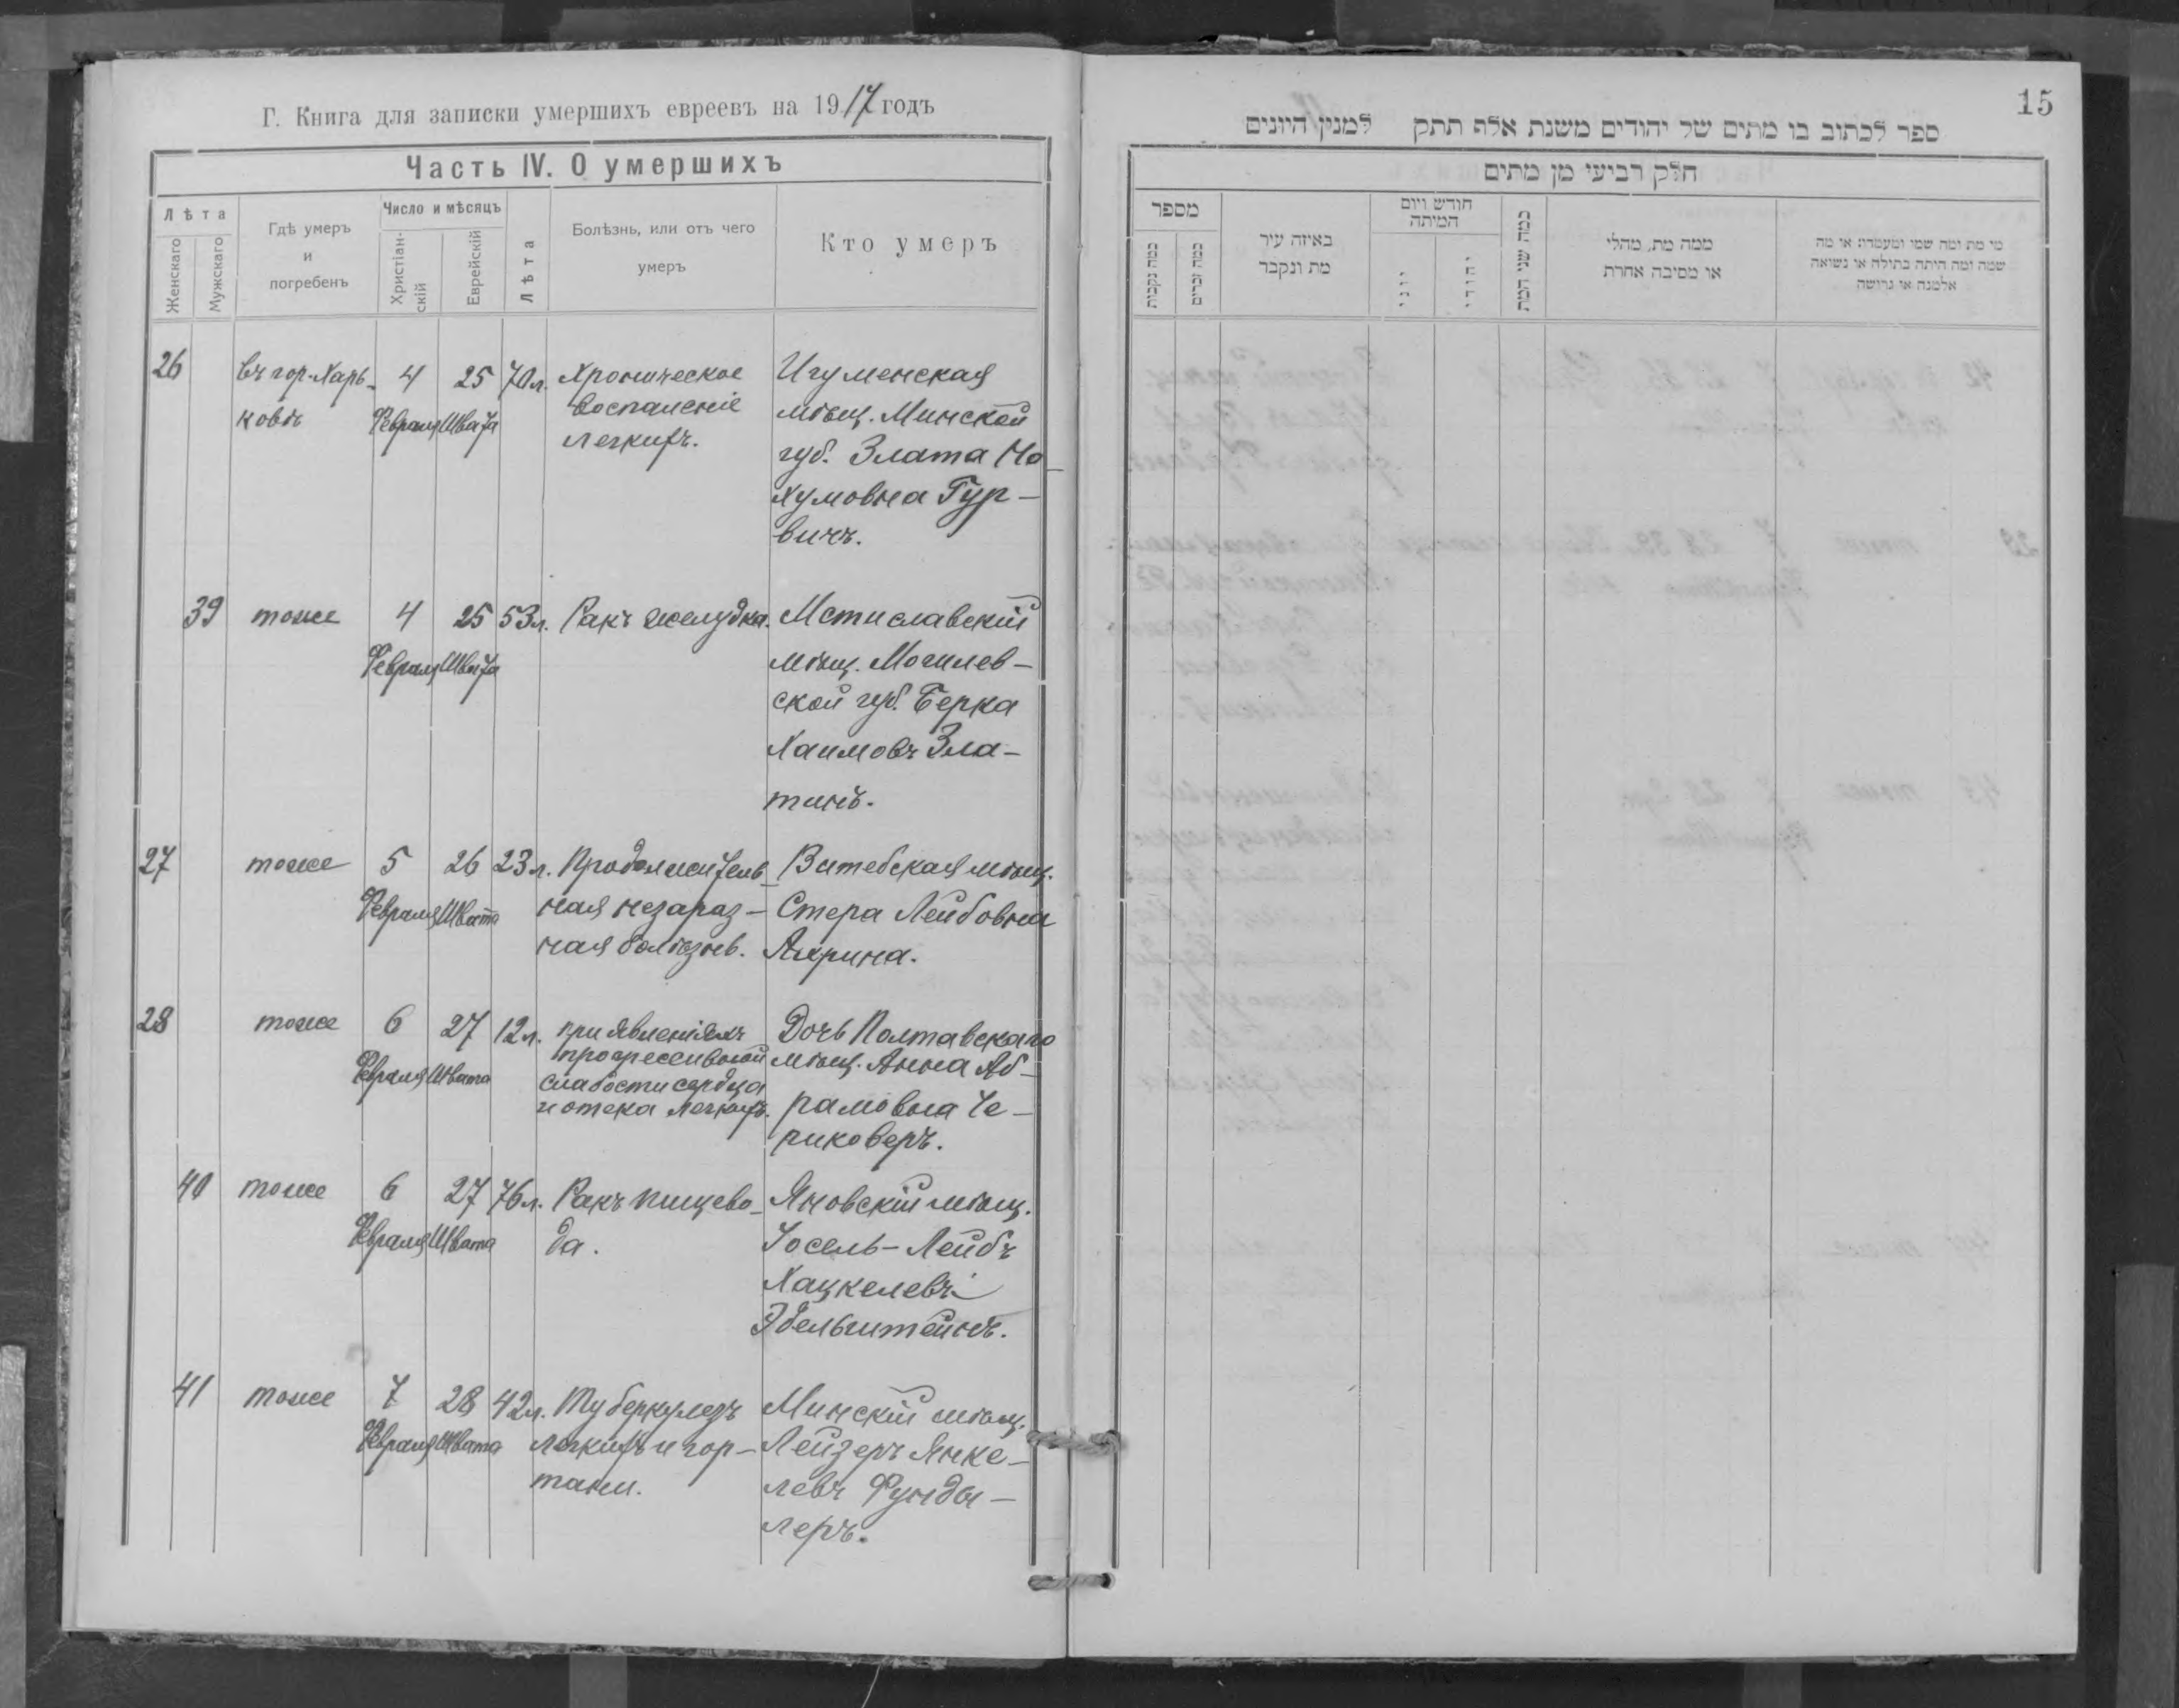 Г. Книга для записки умершихъ евреевъ на 1917 годъ
Часть IV. О умершихъ
Лѣта
Женскаго
Мужскаго
Гдѣ умеръ
и
погребенъ
Число и мѣсяцъ
Христіан-
скій
Еврейскій
Лѣта
Болѣзнь, или отъ чего
умеръ
Кто умеръ
26 въ гор. Харь- 4 25 70 л. Хроническое Игуменская
ковѣ Февраля Швата воспаленіе мѣщ. Минской
легкихъ. губ. Злата Но-
хумовна Гур-
вичъ.
39 тоже 4 25 53 л. Ракъ желудка. Мстиславскій
Февраля Швата мѣщ. Могилев-
ской губ. Берка
Хаимовъ Зла-
тинъ.
27 тоже 5 26 23 л. Продолжитель- Витебская мѣщ.
Февраля Швата ная незараз- Стера Лейбовна
ная болѣзнь. Ахрина.
28 тоже 6 27 12 л. при явленіяхъ Дочь Полтавскаго
Февраля Швата прогрессивной мѣщ. Анна Аб-
слабости сердца
и отека легкихъ. рамовна Че-
риковеръ.
40 тоже 6 27 76 л. Ракъ пищево- Яновскій мѣщ.
Февраля Швата да. Іосель-Лейбъ
Хацкелевъ
Эдельштейнъ.
41 тоже 7 28 42 л. Туберкулезъ Минскій мѣщ.
Февраля Швата легкихъ и гор- Лейзеръ Янке-
тани. левъ Фунды-
леръ.
15
ספר לכתוב בו מתים של יהודים משנת אלף תתק למנין היונים
חלק רביעי מן מתים
מספר
כמה נקבות
כמה זכרים
באיזה עיר
מת ונקבר
חודש ויום
המיתה
יוני
יהודי
כמה שני המת
ממה מת, מחלי
או מסיבה אחרת
מי מת ומה שמו ומעמדו או מה
שמה ומה היתה בתולה או נשואה
אלמנה או גרושה